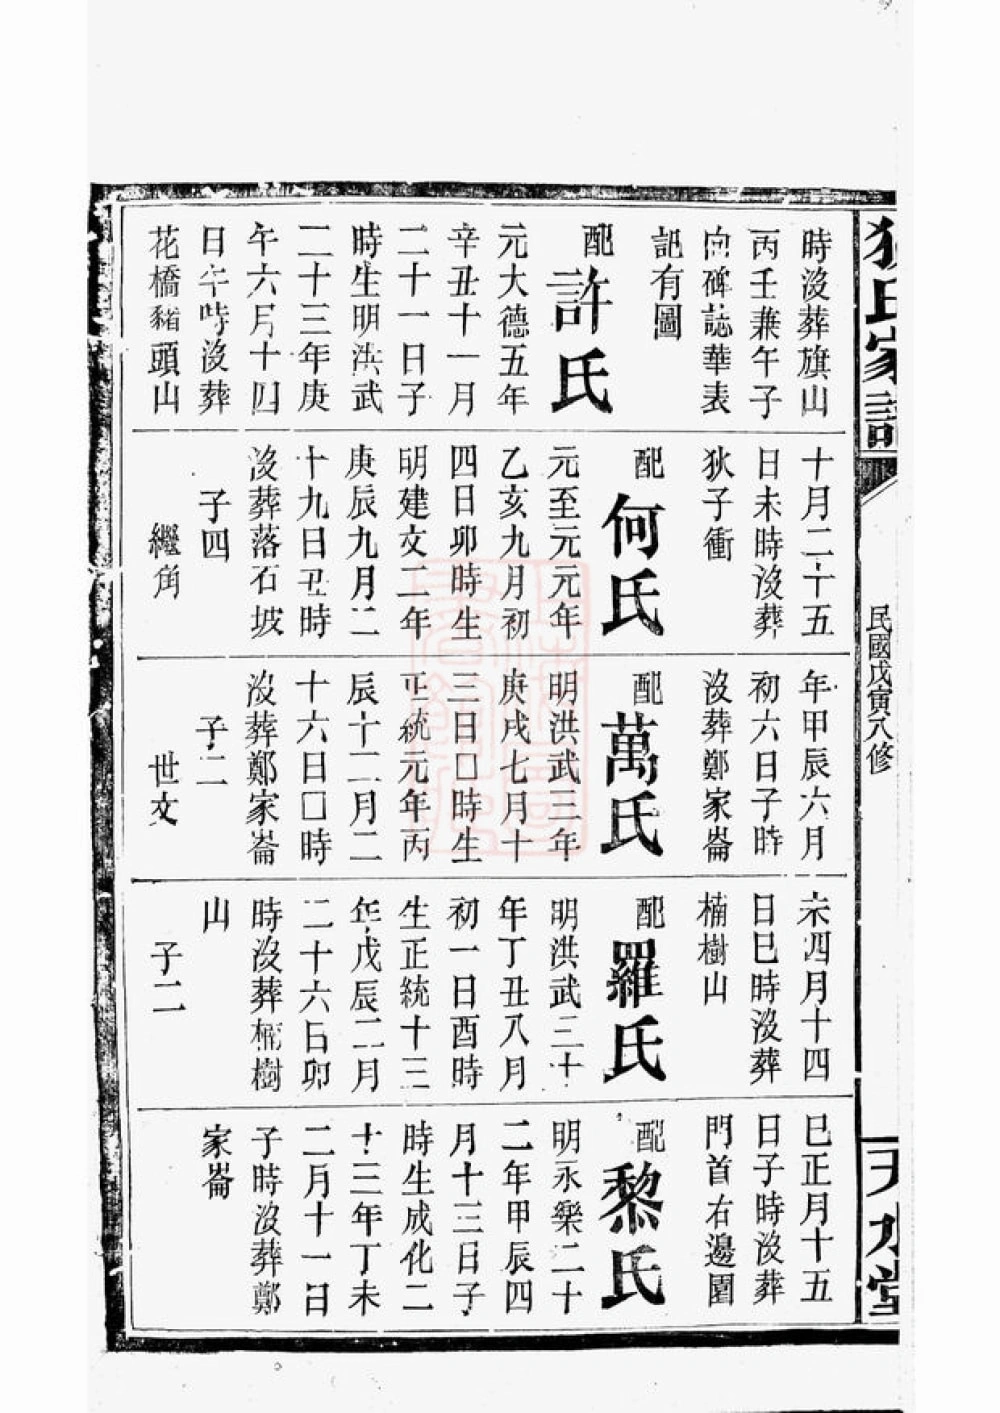 狄氏家譜
民國戊寅八修
天水堂
時沒葬旗山
丙壬兼午子
向碑誌華表
記有圖
配
許氏
元大德五年
辛丑十一月
二十一日子
時生明洪武
二十三年庚
午六月十四
日午時沒葬
花橋豬頭山
十月二十五
日未時沒葬
狄子衝
配
何氏
元至元元年
乙亥九月初
四日卯時生
明建文二年
庚辰九月二
十九日丑時
沒葬落石坡
子四
繼角
年甲辰六月
初六日子時
沒葬鄭家崙
配
萬氏
明洪武三年
庚戌七月十
三日囗時生
正統元年丙
辰十二月二
十六日囗時
沒葬鄭家崙
子二
世文
未四月十四
日巳時沒葬
楠樹山
配
羅氏
明洪武三十
年丁丑八月
初一日酉時
生正統十三
年戊辰二月
二十六日卯
時沒葬楠樹
山
子二
巳正月十五
日子時沒葬
門首右邊園
配
黎氏
明永樂二十
二年甲辰四
月十三日子
時生成化二
十三年丁未
二月十一日
子時沒葬鄭
家崙